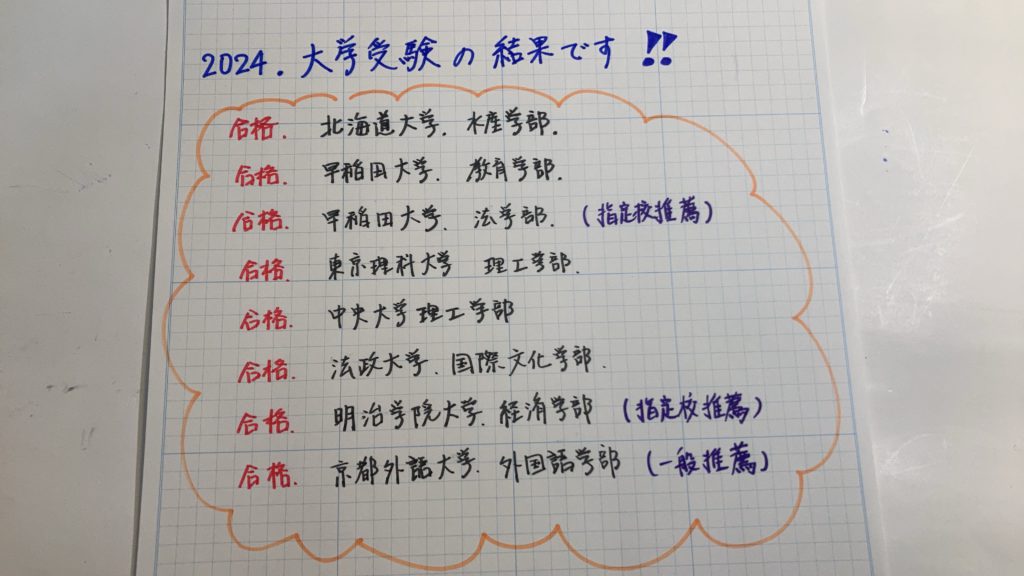 2024. 大学受験の結果です!!
合格. 北海道大学. 水産学部.
合格. 早稲田大学. 教育学部.
合格. 早稲田大学. 法学部. (指定校推薦)
合格. 東京理科大学 理工学部.
合格. 中央大学理工学部
合格. 法政大学. 国際文化学部.
合格. 明治学院大学. 経済学部 (指定校推薦)
合格. 京都外語大学. 外国語学部 (一般推薦)